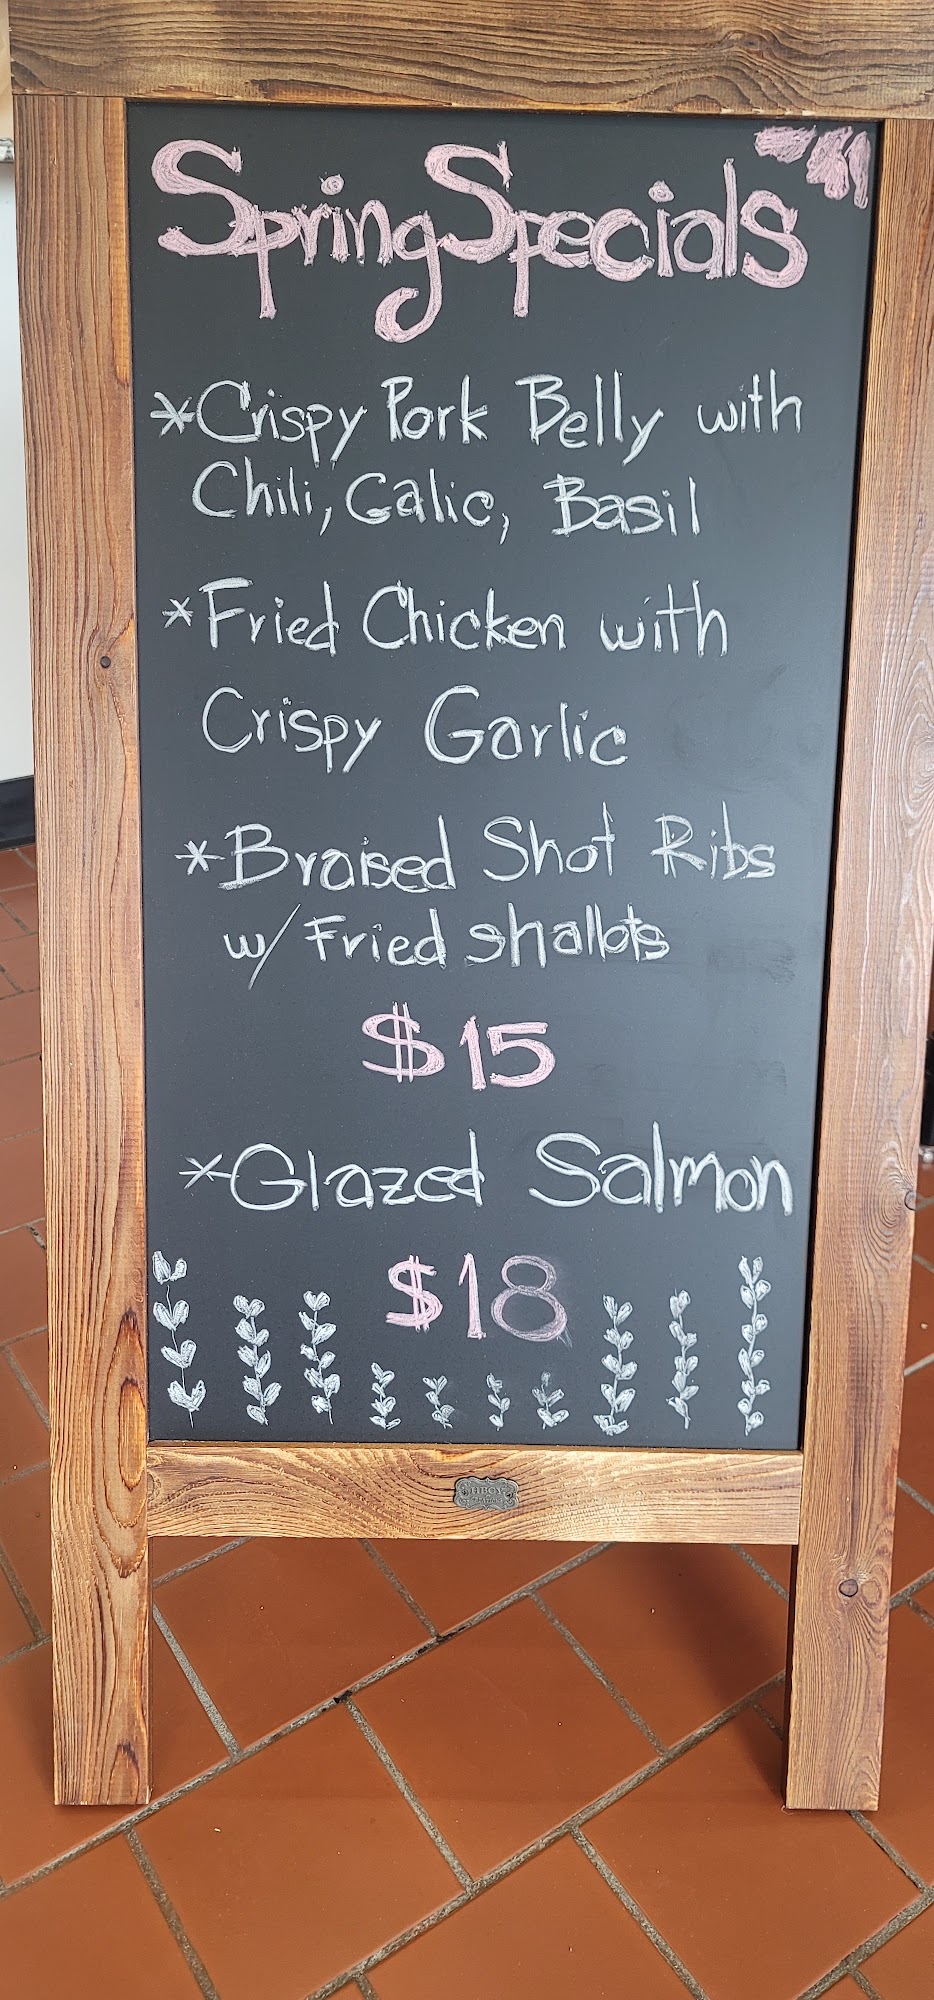 Spring Specials
*Crispy Pork Belly with
Chili, Galic, Basil
*Fried Chicken with
Crispy Garlic
*Braised Shot Ribs
w/ Fried shallots
$15
*Glazed Salmon
$18